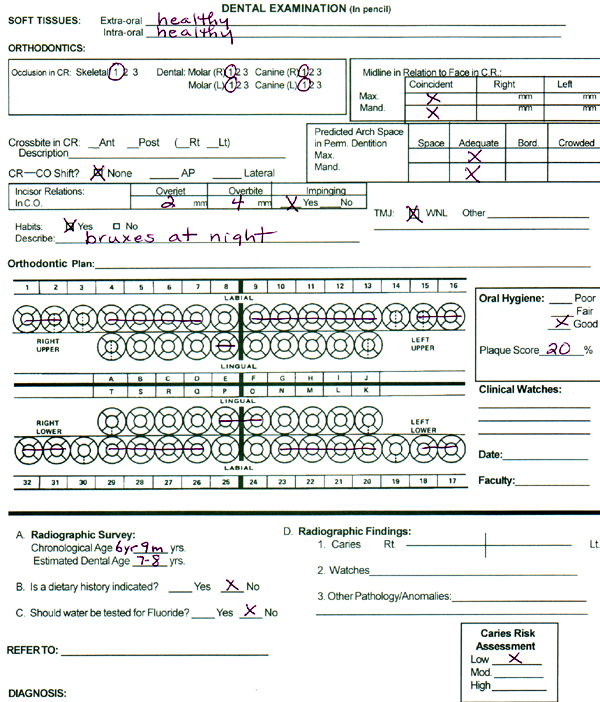 DENTAL EXAMINATION (In pencil)
SOFT TISSUES: Extra-oral healthy
Intra-oral healthy
ORTHODONTICS:
Occlusion in CR: Skeletal 1 2 3 Dental: Molar (R) 1 2 3 Canine (R) 1 2 3
Molar (L) 1 2 3 Canine (L) 1 2 3
Midline in Relation to Face in C.R.:
Coincident Right Left
Max. X mm mm
Mand. X mm mm
Crossbite in CR: __Ant __Post (__Rt __Lt)
Description
Predicted Arch Space
in Perm. Dentition
Space Adequate Bord. Crowded
Max. X
Mand. X
CR—CO Shift? X None ____ AP ____ Lateral
Incisor Relations: Overjet Overbite Impinging
In C.O. 2 mm 4 mm X Yes __No
TMJ: X WNL Other
Habits: X Yes □ No
Describe: bruxes at night
Orthodontic Plan:
1 2 3 4 5 6 7 8 9 10 11 12 13 14 15 16
LABIAL
RIGHT UPPER
LEFT UPPER
LINGUAL
A B C D E F G H I J
T S R Q P O N M L K
LINGUAL
RIGHT LOWER
LEFT LOWER
LABIAL
32 31 30 29 28 27 26 25 24 23 22 21 20 19 18 17
Oral Hygiene: ____ Poor
____ Fair
X Good
Plaque Score 20 %
Clinical Watches:
Date:
Faculty:
A. Radiographic Survey:
Chronological Age 6yr 9m yrs.
Estimated Dental Age 7-8 yrs.
B. Is a dietary history indicated? ____ Yes X No
C. Should water be tested for Fluoride? ____ Yes X No
D. Radiographic Findings:
1. Caries Rt. Lt.
2. Watches
3. Other Pathology/Anomalies:
REFER TO:
Caries Risk
Assessment
Low X
Mod.
High
DIAGNOSIS: